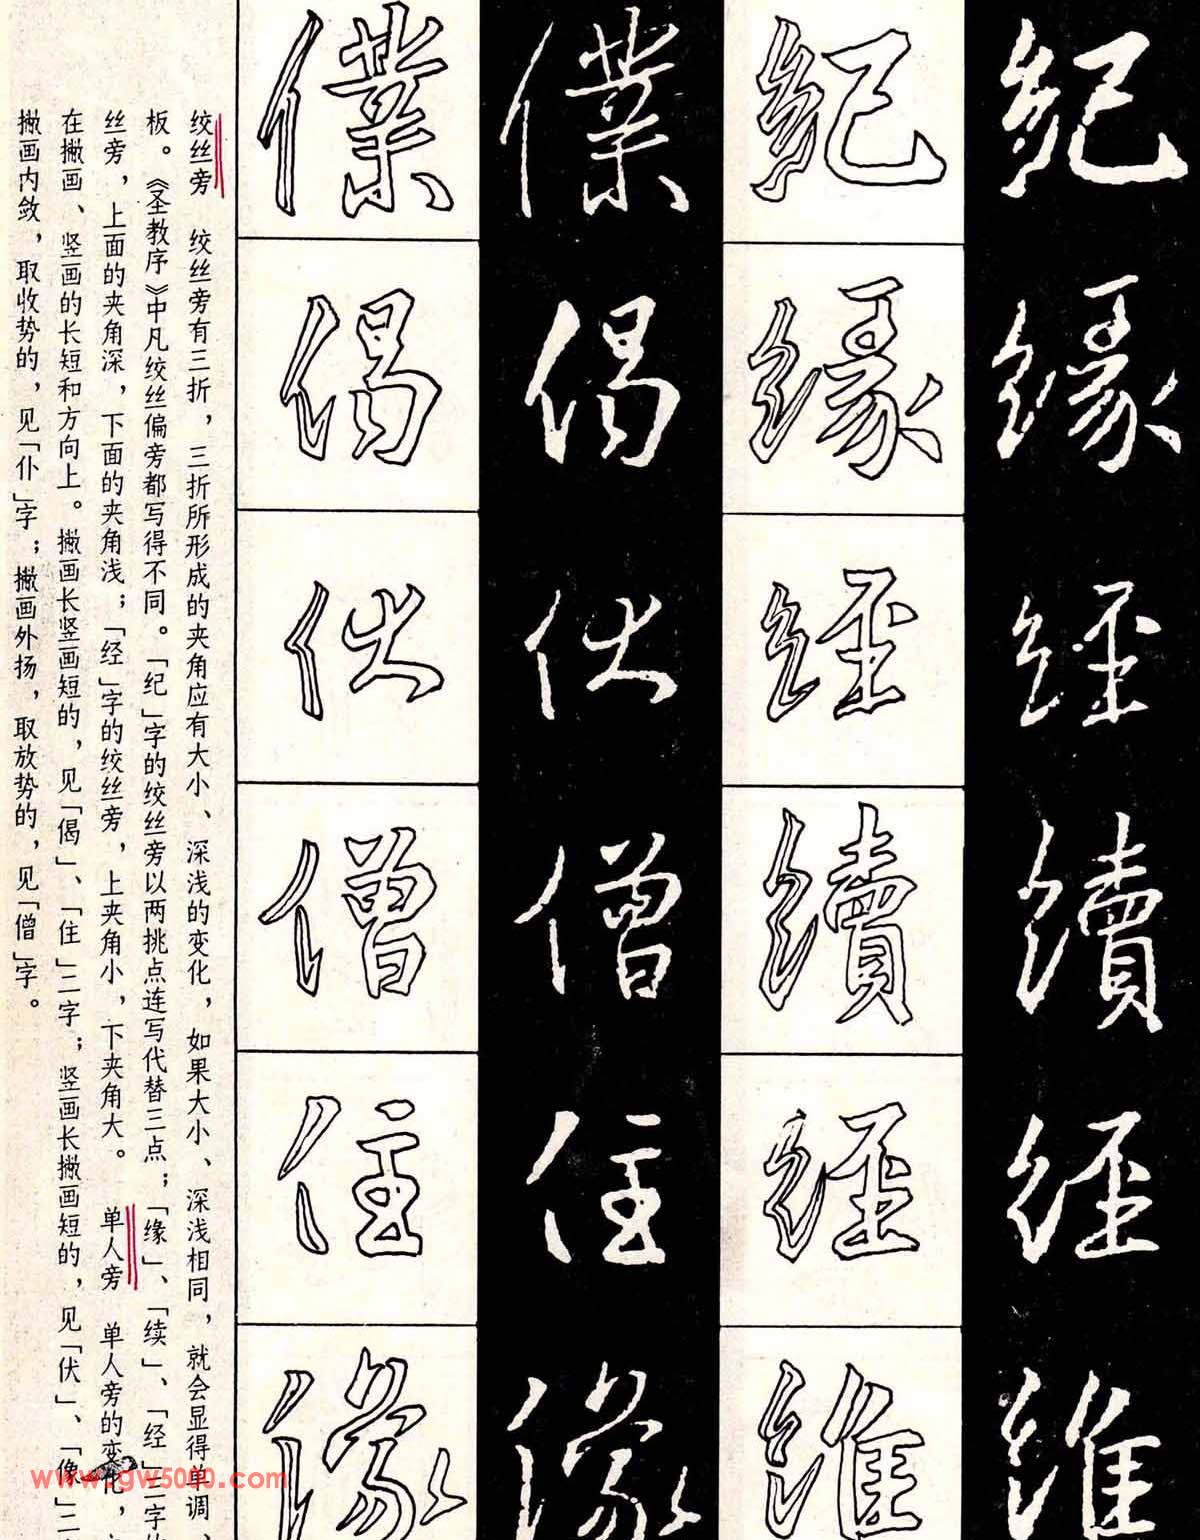 紀
緣
經
續
經
維
紀
緣
經
續
經
維
僕
偈
伏
僧
住
像
僕
偈
伏
僧
住
像
绞丝旁 绞丝旁有三折，三折所形成的夹角应有大小、深浅的变化，如果大小、深浅相同，就会显得单调、
板。《圣教序》中凡绞丝偏旁都写得不同。「纪」字的绞丝旁以两挑点连写代替三点；「缘」、「续」、「经」三字的
丝旁，上面的夹角深，下面的夹角浅；「经」字的绞丝旁，上夹角小，下夹角大。 单人旁 单人旁的变化，
在撇画、竖画的长短和方向上。撇画长竖画短的，见「偈」、「住」二字；竖画长撇画短的，见「伏」、「像」二
撇画内敛，取收势的，见「仆」字；撇画外扬，取放势的，见「僧」字。
www.gw5000.com